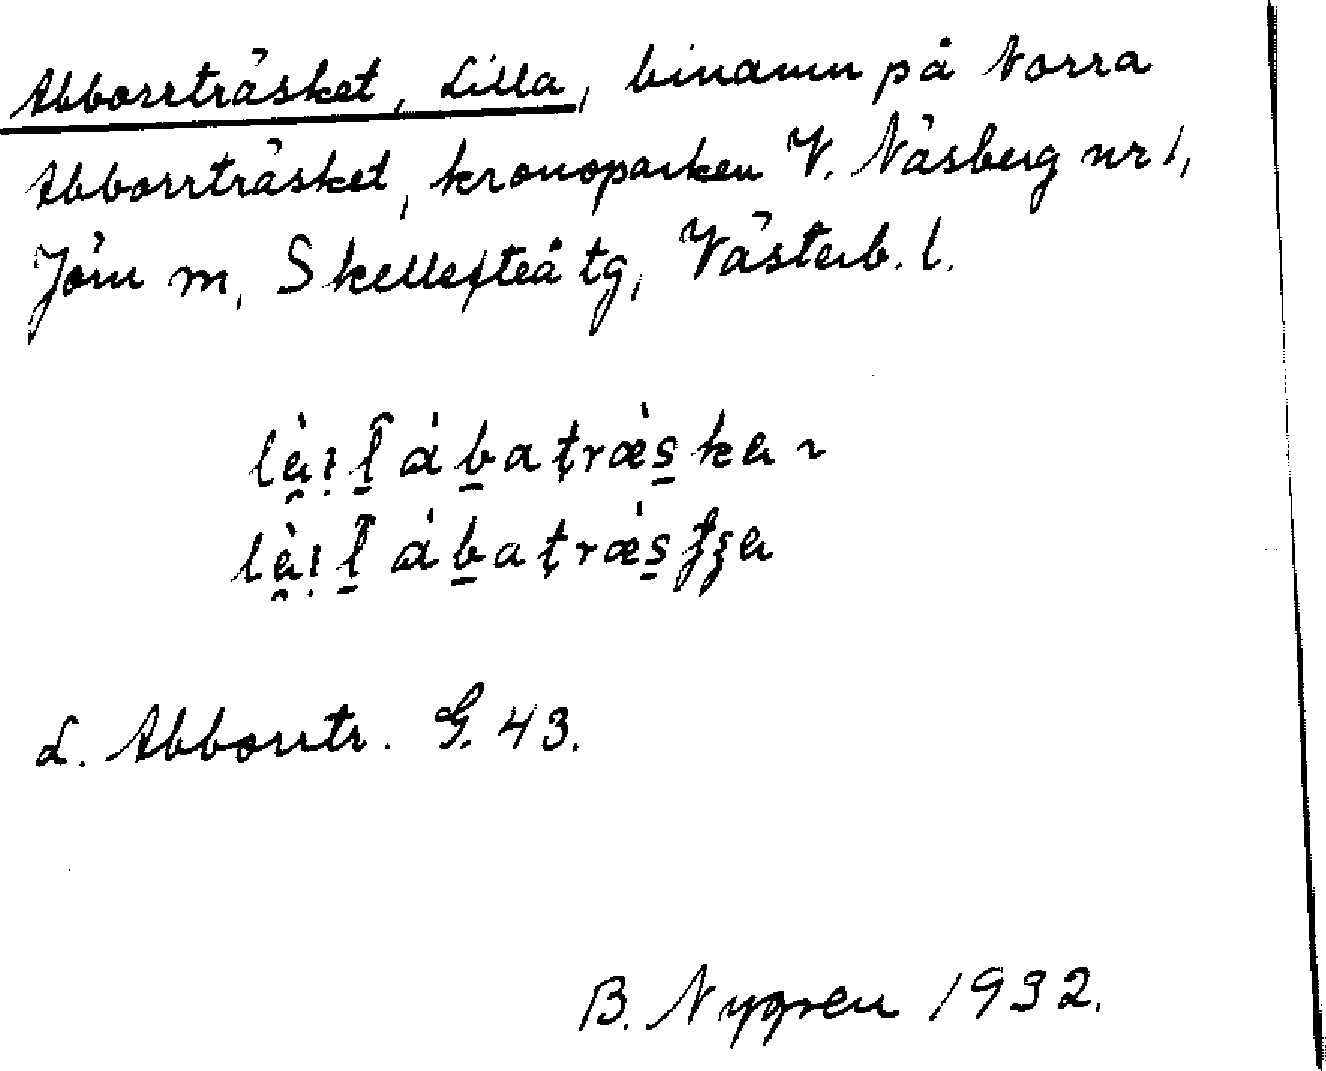 Abborrträsket, Lilla, binamn på Norra
Abborrträsket, kronoparken V. Näsberg nr 1,
Jörn sn, Skellefteå tg, Västerb. l.
là̯ı̣l̲̄ áb̲aţræ̀s̲ka ~
là̯ı̣l̲̄ áb̲aţræ̀s̲
L. Abborrtr. G. 43.
B. Nygren 1932.